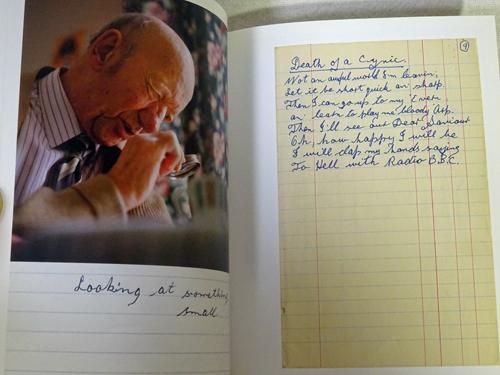 Looking at something
small
9
Death of a Cynic.
Not an awful world I'm leavin;
Let it be short quick an' sharp.
Then I can go up to my
an' learn to play me bloody 'Arp.
Then I'll see our Dear Saviour
Oh, how happy I will be
I will clap my hands saying
To Hell with Radio B.B.C.